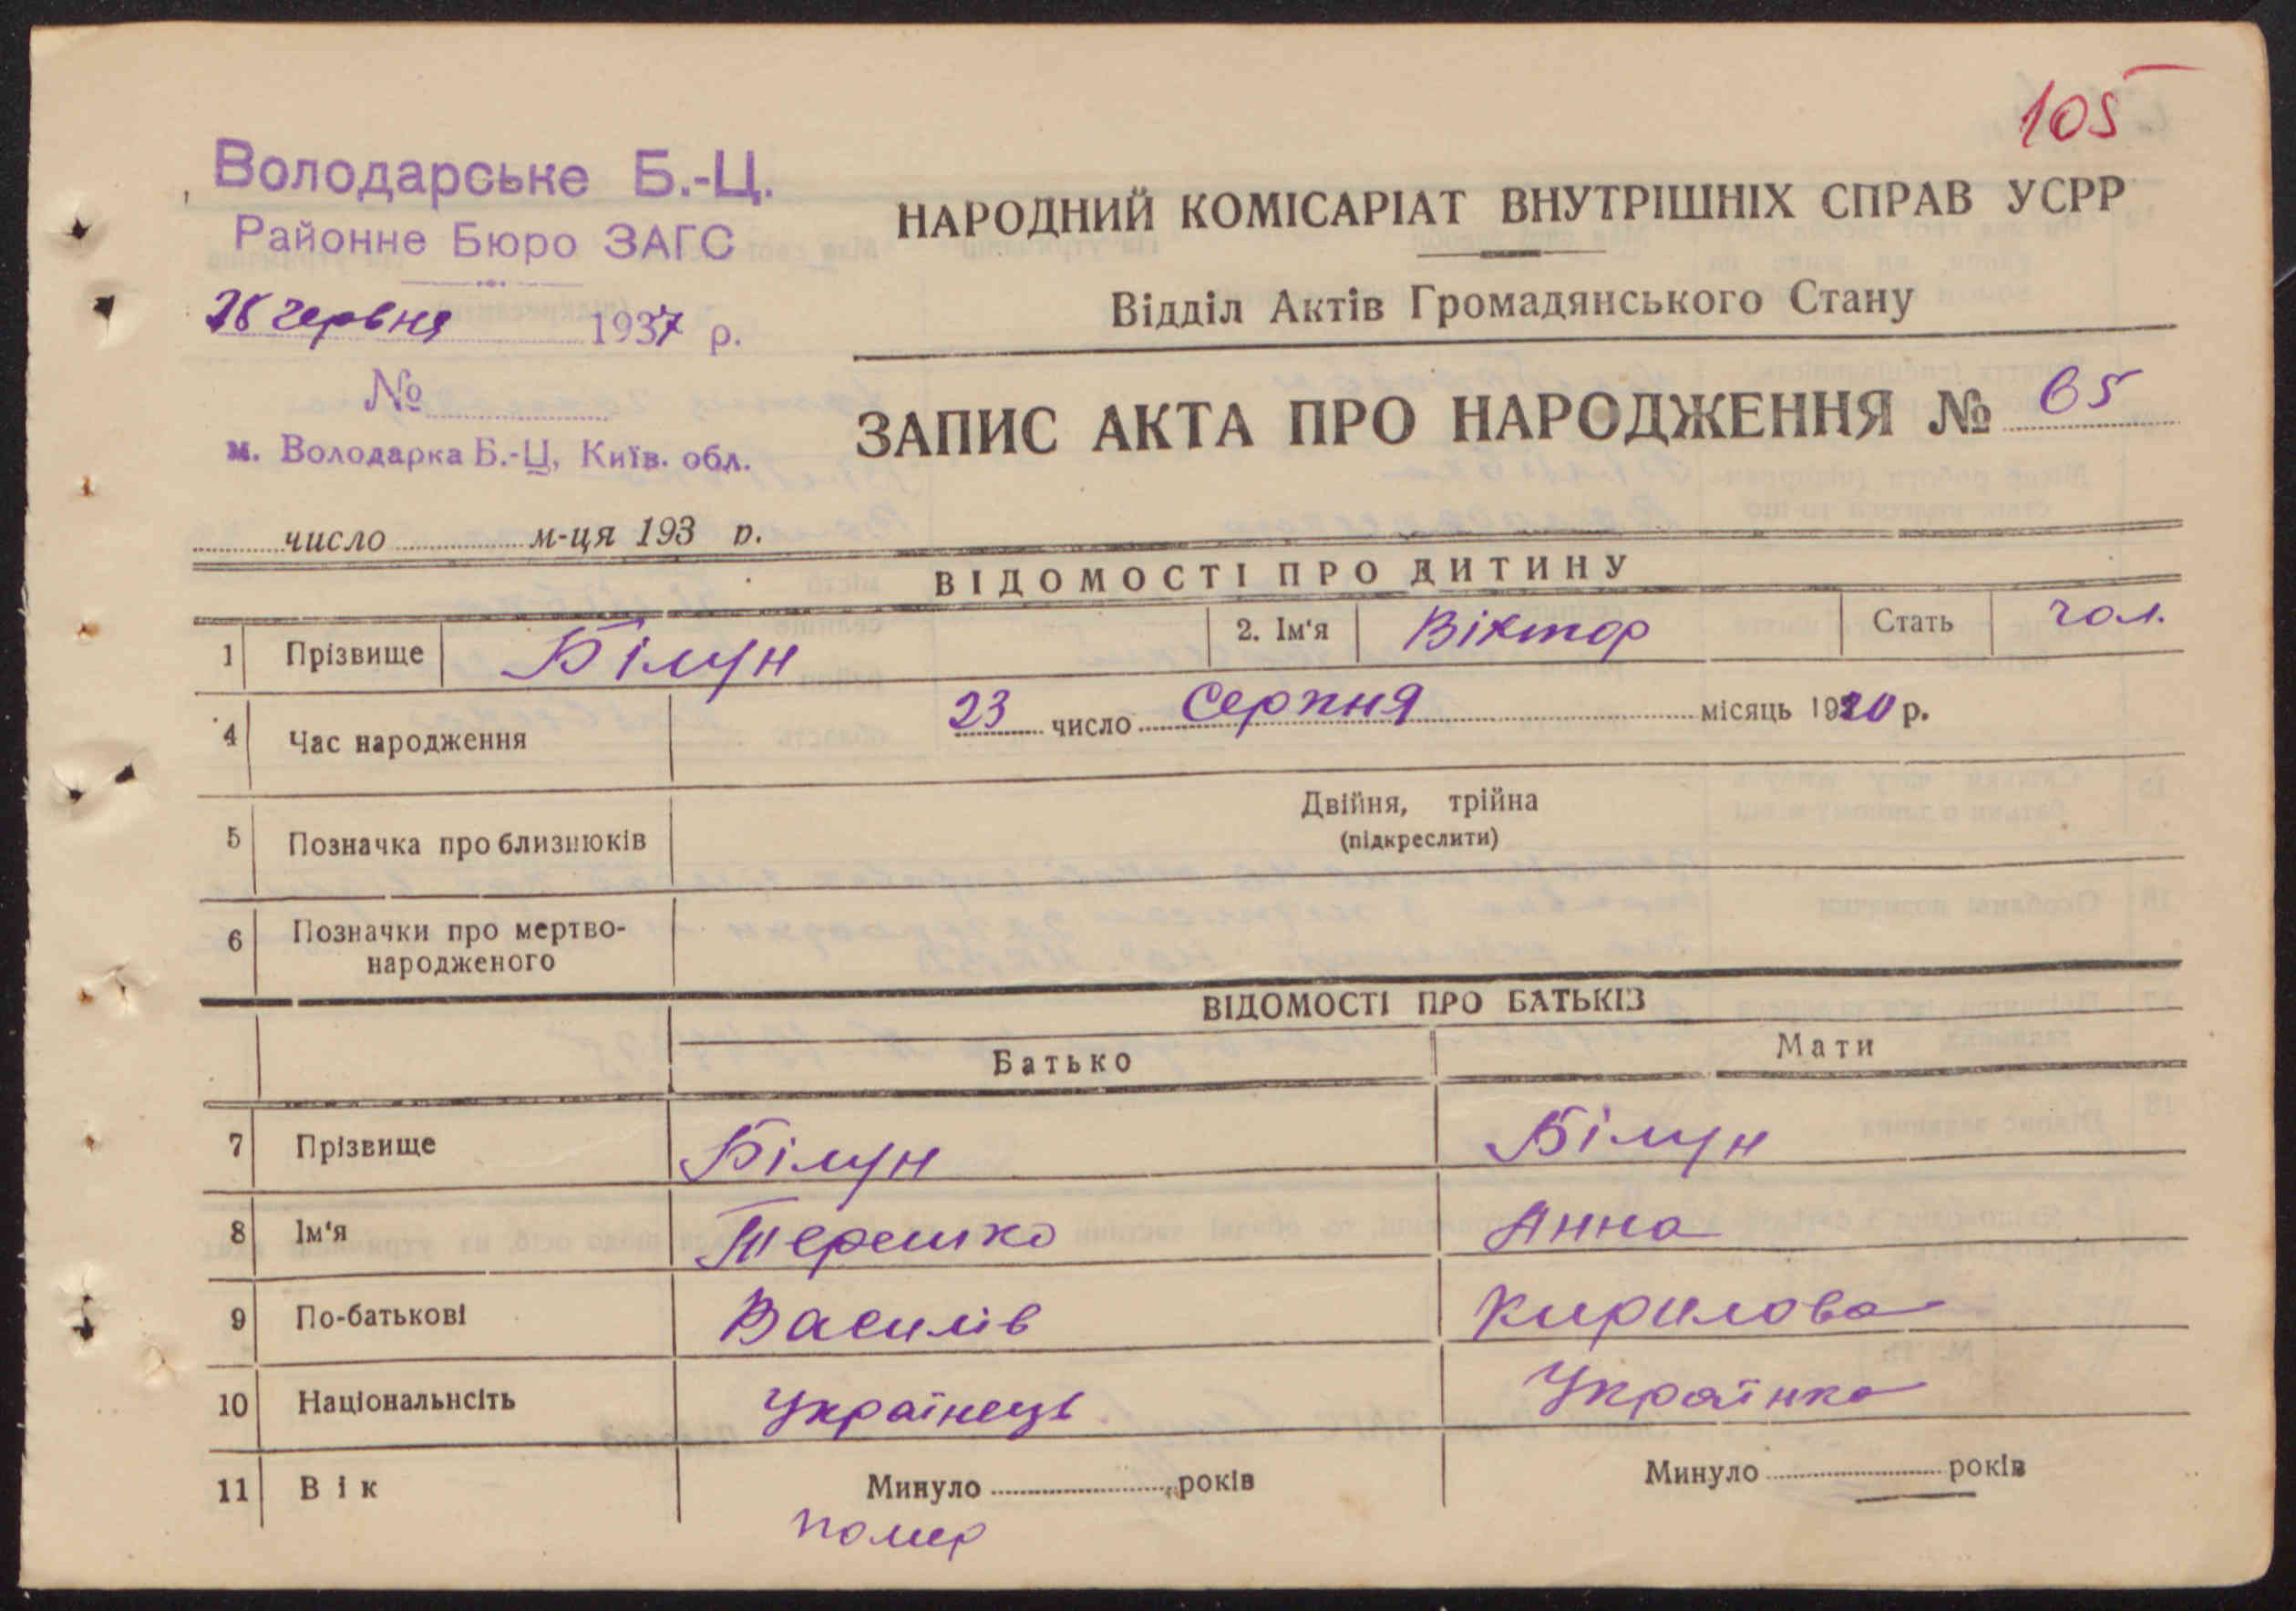 105
Володарське Б.-Ц.
Районне Бюро ЗАГС
28 червня 1937 р.
№
м. Володарка Б.-Ц, Київ. обл.
НАРОДНИЙ КОМІСАРІАТ ВНУТРІШНІХ СПРАВ УСРР
Відділ Актів Громадянського Стану
ЗАПИС АКТА ПРО НАРОДЖЕННЯ № 65
число м-ця 193 р.
ВІДОМОСТІ ПРО ДИТИНУ
1 Прізвище Білун 2. Ім'я Віктор Стать чол.
4 Час народження 23 число Серпня місяць 1920 р.
5 Позначка про близнюків Двійня, трійна
(підкреслити)
6 Позначки про мертво-
народженого
ВІДОМОСТІ ПРО БАТЬКІВ
Батько Мати
7 Прізвище Білун Білун
8 Ім'я Терешко Анна
9 По-батькові Василів Кирилова
10 Національнсіть Українець Українка
11 Вік Минуло років Минуло років
помер